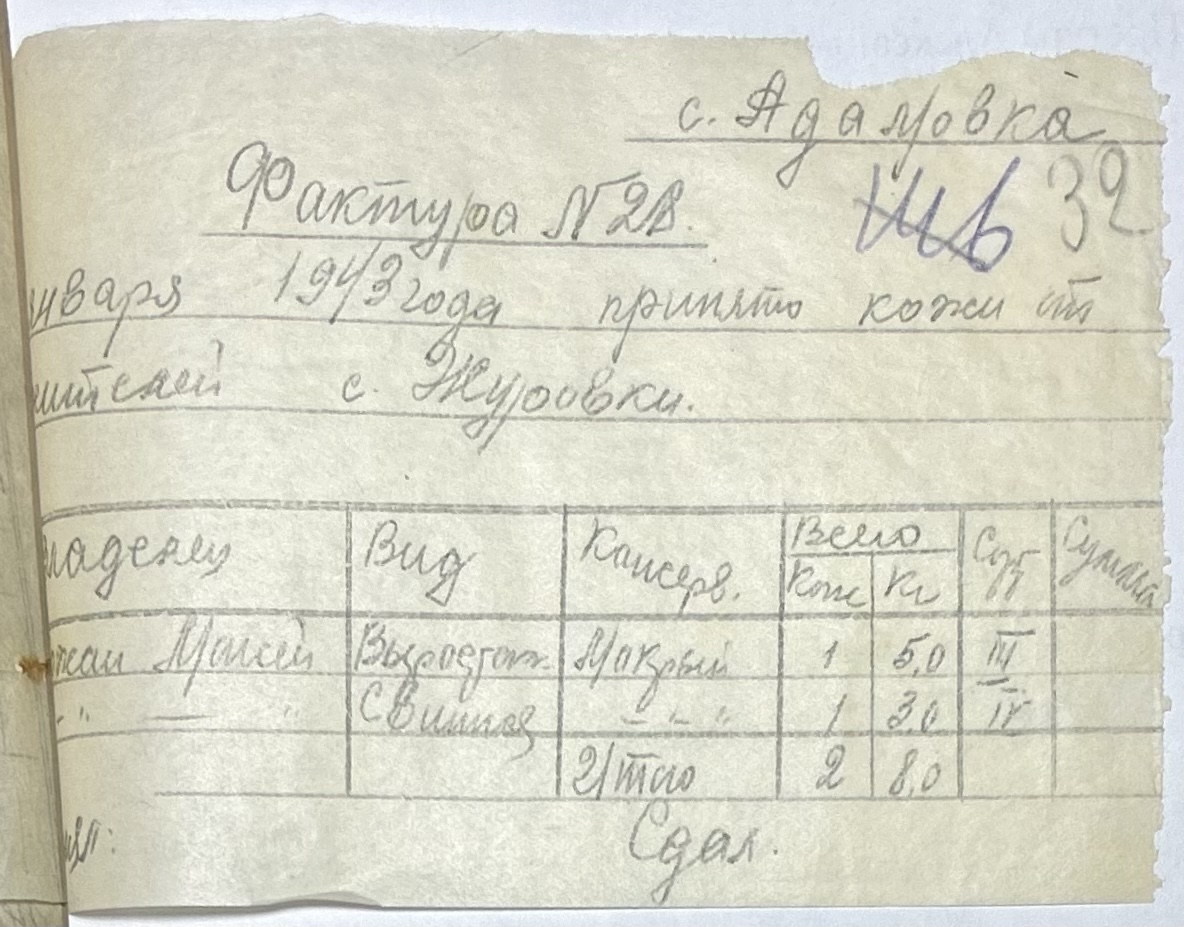 с. Адамовка
Фактура №28.
32
нваря 1943 года принято кожи от
жителей с. Журовки.
владелец Вид Консерв. Всего Сорт Сумма
Кож Кг
Мокей Выросток Мокрый 1 5,0 III
-"- — " Свиная -"-" 1 3,0 IV
Итого 2 8,0
нял: Сдал.